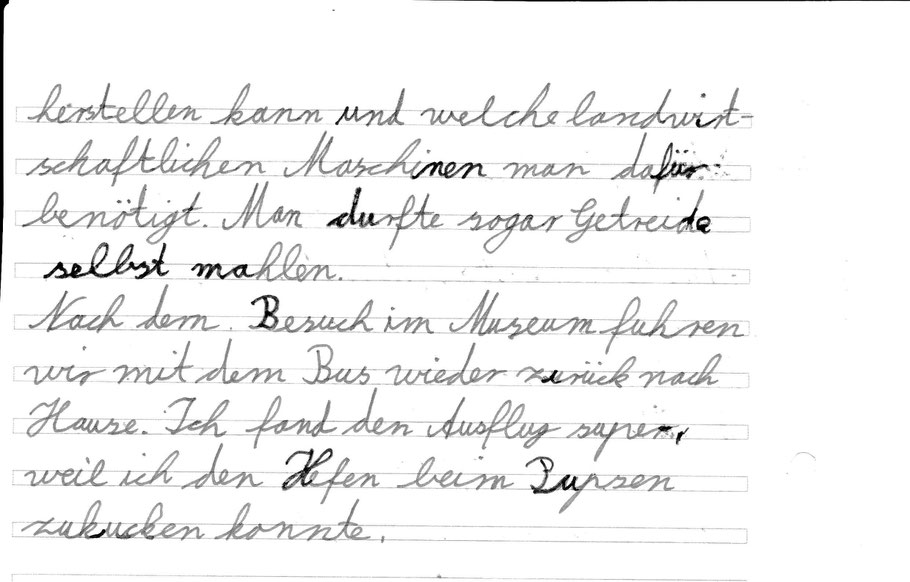 herstellen kann und welche landwirt-
schaftlichen Maschinen man dafür
benötigt. Man durfte sogar Getreide
selbst mahlen.
Nach dem Besuch im Museum fuhren
wir mit dem Bus wieder zurück nach
Hause. Ich fand den Ausflug super,
weil ich den Hefen beim Pupsen
zukucken konnte.